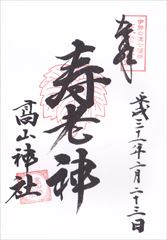 奉拝
平成二十一年一月二十三日
寿老神
高山神社